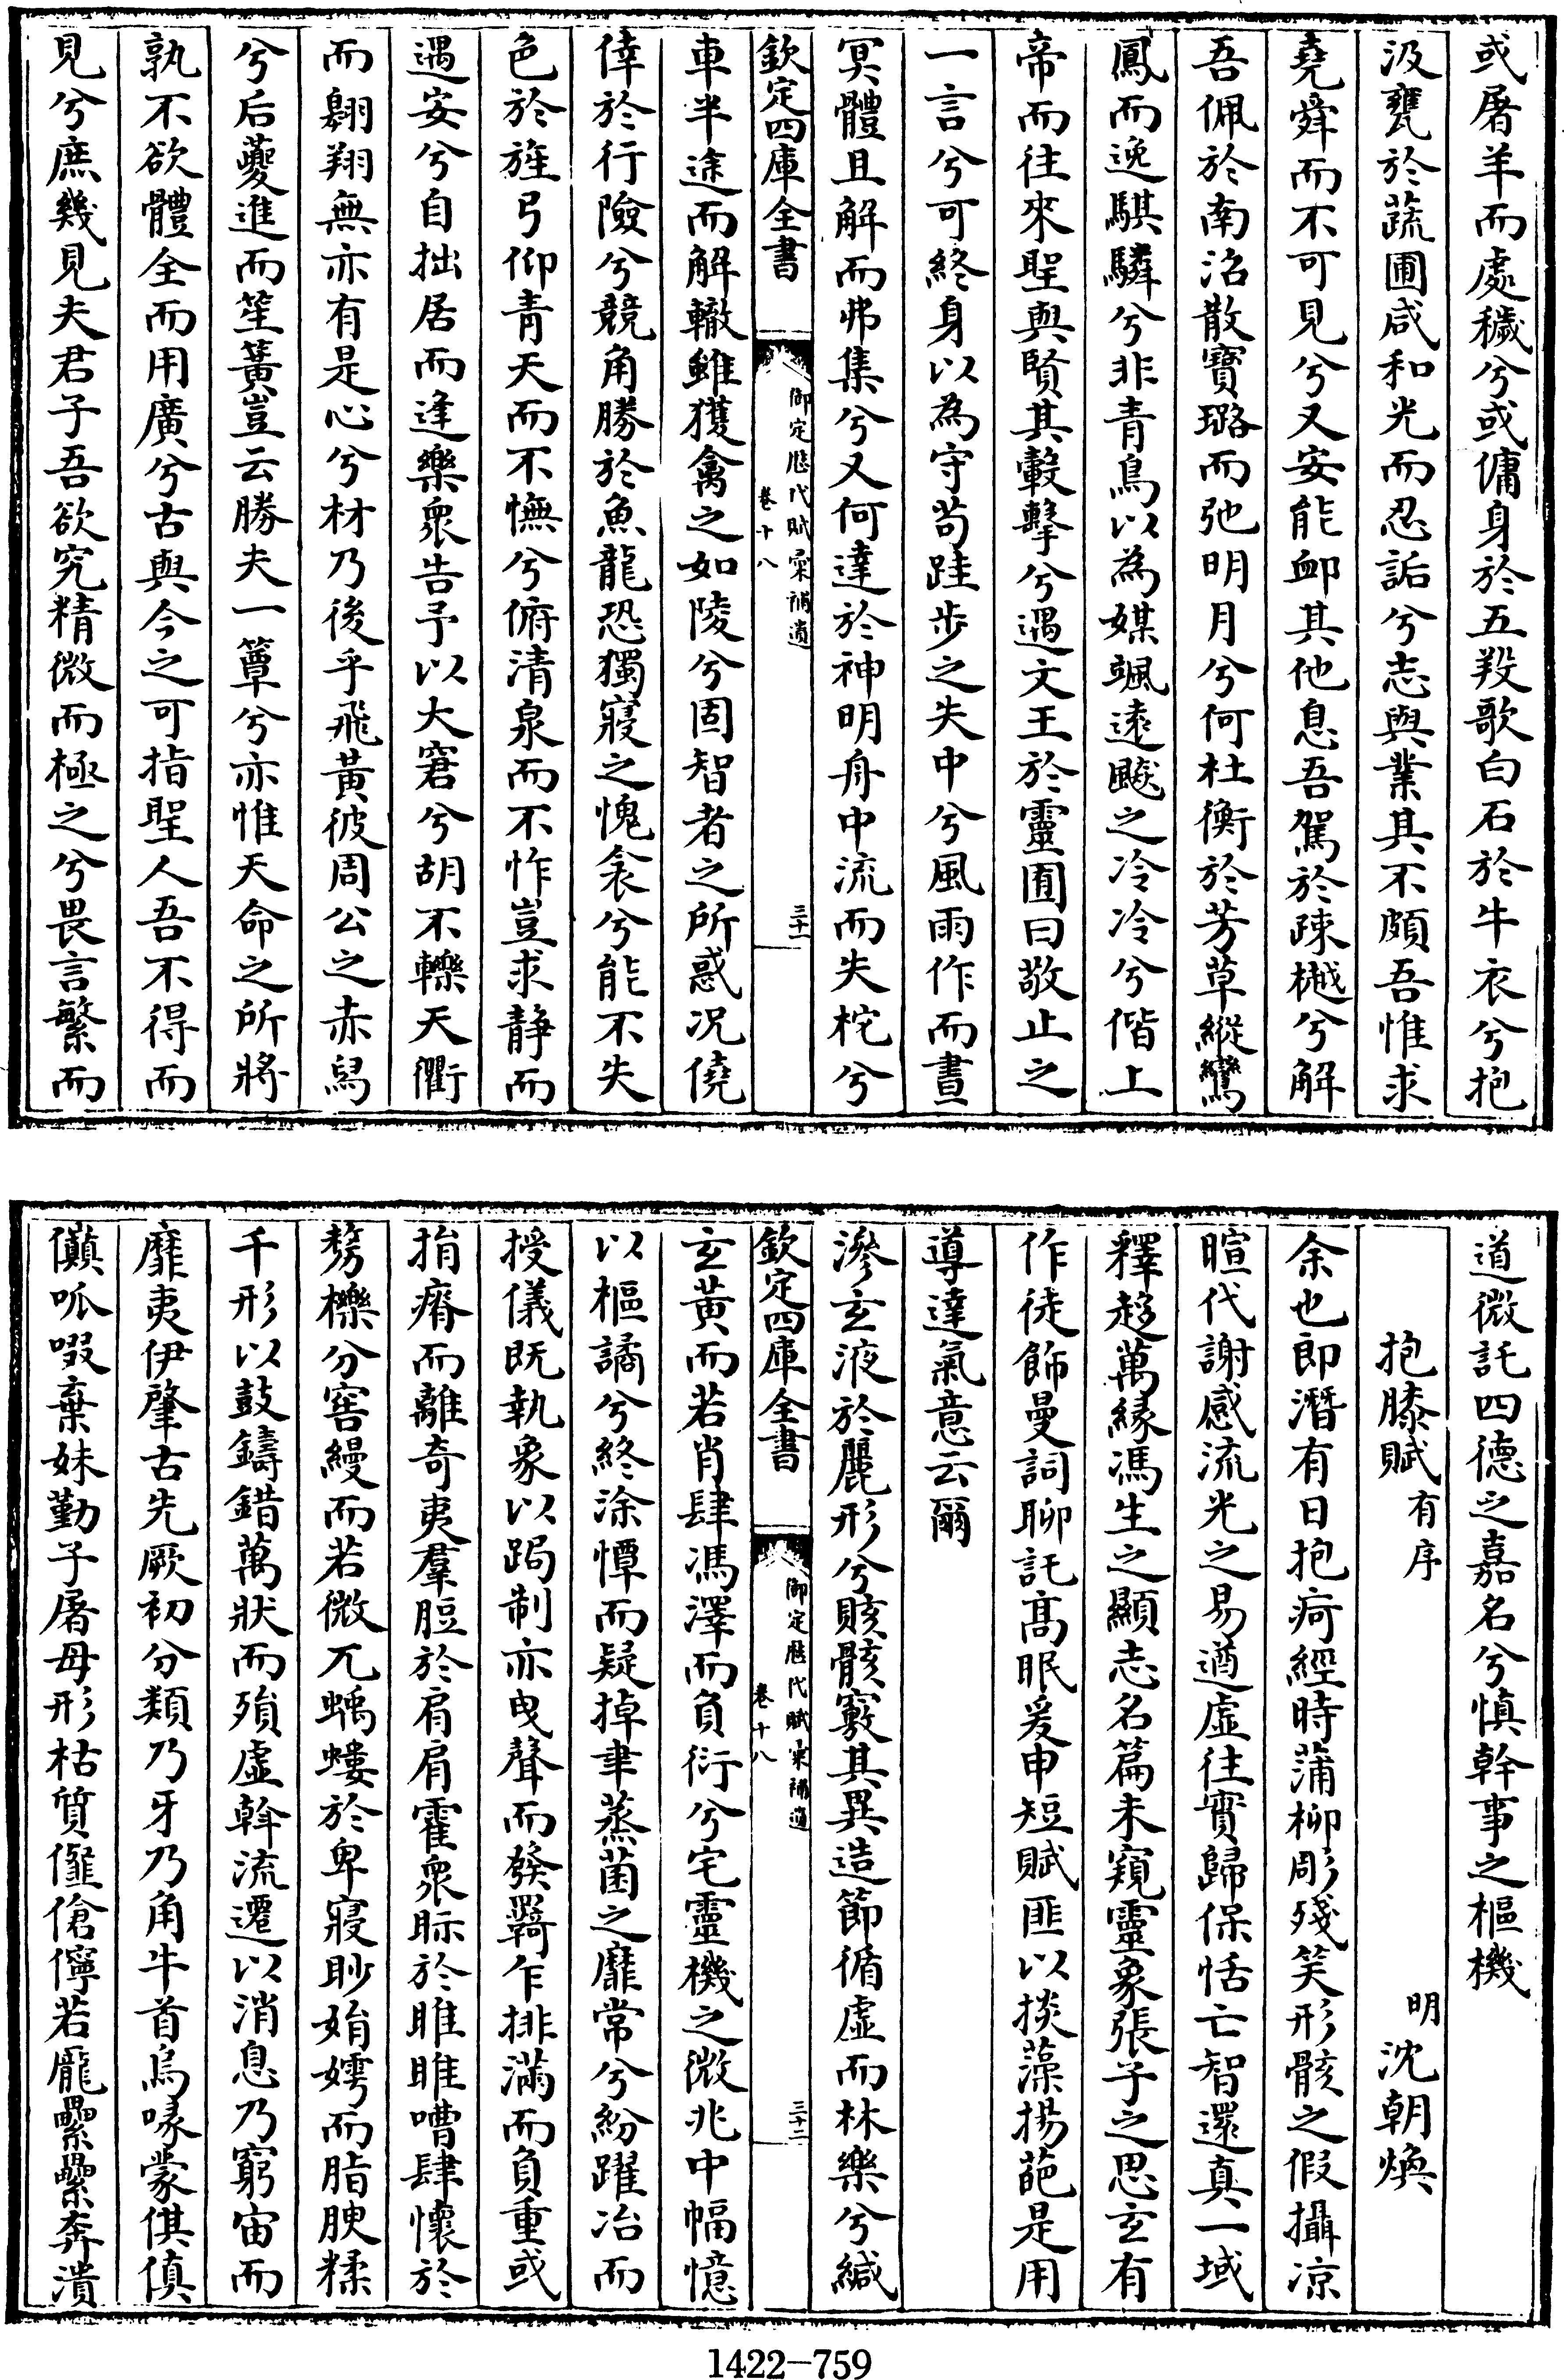 或屠羊而處穢兮或傭身於五羖歌白石於牛衣兮抱
汲甕於蔬圃咸和光而忍詬兮志與業其不頗吾惟求
堯舜而不可見兮又安能卹其他息吾駕於疎樾兮解
吾佩於南沼散寶璐而弛明月兮何杜衡於芳草縱鸞
鳳而逸騏驎兮非青鳥以為媒颯遠颷之冷冷兮偕上
帝而往來聖與賢其轂擊兮遇文王於靈囿曰敬止之
一言兮可終身以為守茍跬步之失中兮風雨作而晝
冥體且解而弗集兮又何達於神明舟中流而失柁兮
欽定四庫全書
御定歴代賦彙補遺
卷十八
三十一
車半途而解轍雖獲禽之如陵兮固智者之所惑况僥
倖於行險兮競角勝於魚龍恐獨寢之愧衾兮能不失
色於旌弓仰青天而不憮兮俯清泉而不怍豈求静而
遇妄兮自拙居而逢樂衆告予以大窘兮胡不轢天衢
而翺翔無亦有是心兮材乃後乎飛黄彼周公之赤舄
兮后夔進而笙簧豈云勝夫一簟兮亦惟天命之所將
孰不欲體全而用廣兮古與今之可指聖人吾不得而
見兮庶幾見夫君子吾欲究精微而極之兮畏言繁而
道微託四德之嘉名兮慎幹事之樞機
抱膝賦有序
明沈朝煥
余也即潛有日抱疴經時蒲柳彫殘笑形骸之假攝凉
暄代謝感流光之易遒虛往實歸保恬亡智還真一域
釋趂萬緣馮生之顯志名篇未窺靈象張子之思玄有
作徒飾曼詞聊託髙眠爰申短賦匪以掞藻揚葩是用
導達氣意云爾
滲玄液於麗形兮賅骸竅其異造節循虛而林樂兮緘
欽定四庫全書
御定歴代賦彙補遺
卷十八
三十二
玄黄而若肖肆馮澤而負衍兮宅靈機之微兆中幅憶
以樞譎兮終涂憛而疑掉聿蒸菌之靡常兮紛躍冶而
授儀既執象以跼制亦曳聲而發羇乍排滿而負重或
捐瘠而離奇夷羣脰於肩肩霍衆眎於睢睢嘈肆懷於
㜜櫟分窖縵而若微兀蝺螻於卑寢眇娋嫮而脂腴糅
千形以鼓鑄錯萬狀而殞虛斡流遷以消息乃窮宙而
靡夷伊肇古先厥初分類乃牙乃角牛首烏喙蒙倛傎
儹呱啜棄妹勤子屠母形枯質儱傖儜若龎纍纍奔潰
1422-759